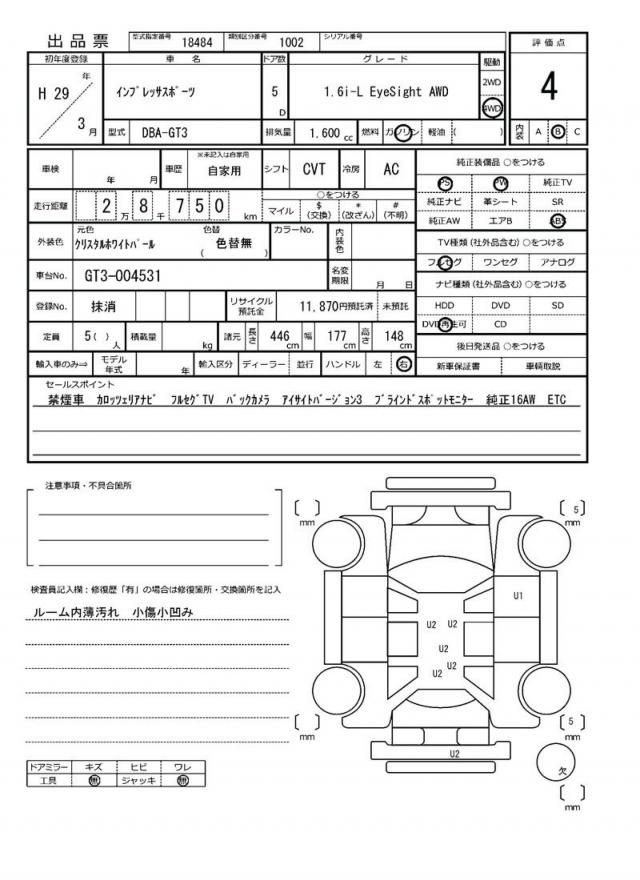 出品票 型式指定番号 18484 類別区分番号 1002 シリアル番号
初年度登録 車名 ドア数 グレード 駆動 評価点
H 29 年 3 月 インプレッサスポーツ 5 D 1.6i-L EyeSight AWD 2WD 4WD 4
型式 DBA-GT3 排気量 1.600 cc 燃料 ガソリン 軽油 ( ) 内装 A B C
車検 年 月 車歴 ※未記入は自家用 自家用 シフト CVT 冷房 AC
純正装備品 ○をつける
PS PW 純正TV
純正ナビ 革シート SR
純正AW エアB ABS
走行距離 2 万 8 千 7 5 0 km ○をつける
マイル $ (交換) * (改ざん) # (不明)
外装色 元色 クリスタルホワイトパール 色替 ( 色替無 ) カラーNo. 内装色
TV種類 (社外品含む) ○をつける
フルセグ ワンセグ アナログ
車台No. GT3-004531 名変期限 月 日
ナビ種類 (社外品含む) ○をつける
HDD DVD SD
DVD再生可 CD
登録No. 抹消 リサイクル預託金 11,870円預託済 未預託
定員 5 ( ) 人 積載量 kg 諸元 長さ 446 cm 幅 177 cm 高さ 148 cm
後日発送品 ○をつける
新車保証書 車輌取説
輸入車のみ⇒ モデル年式 年 輸入区分 ディーラー 並行 ハンドル 左 右
セールスポイント
禁煙車 カロッツェリアナビ フルセグTV バックカメラ アイサイトバージョン3 ブラインドスポットモニター 純正16AW ETC
注意事項・不具合箇所
検査員記入欄：修復歴「有」の場合は修復箇所・交換箇所を記入
ルーム内薄汚れ 小傷小凹み
ドアミラー キズ ヒビ ワレ
工具 無 ジャッキ 無
[ ] mm
[ 5 ] mm
U1
U2 U2
U2
U2
U2
[ ] mm
[ 5 ] mm
U2
欠
[ ] mm